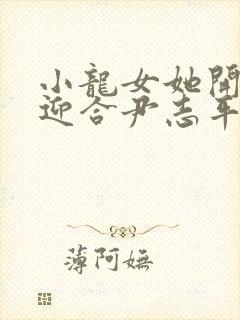 小龍女她開
迎合尹志平
薄阿嫵